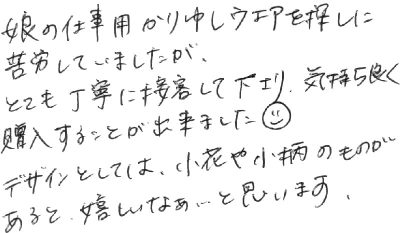 娘の仕事用かりゆしウエアを探しに
苦労していましたが、
とても丁寧に接客して下さり、気持ち良く
購入することが出来ました☺
デザインとしては、小花や小柄のものが
あると、嬉しいなぁ…と思います、